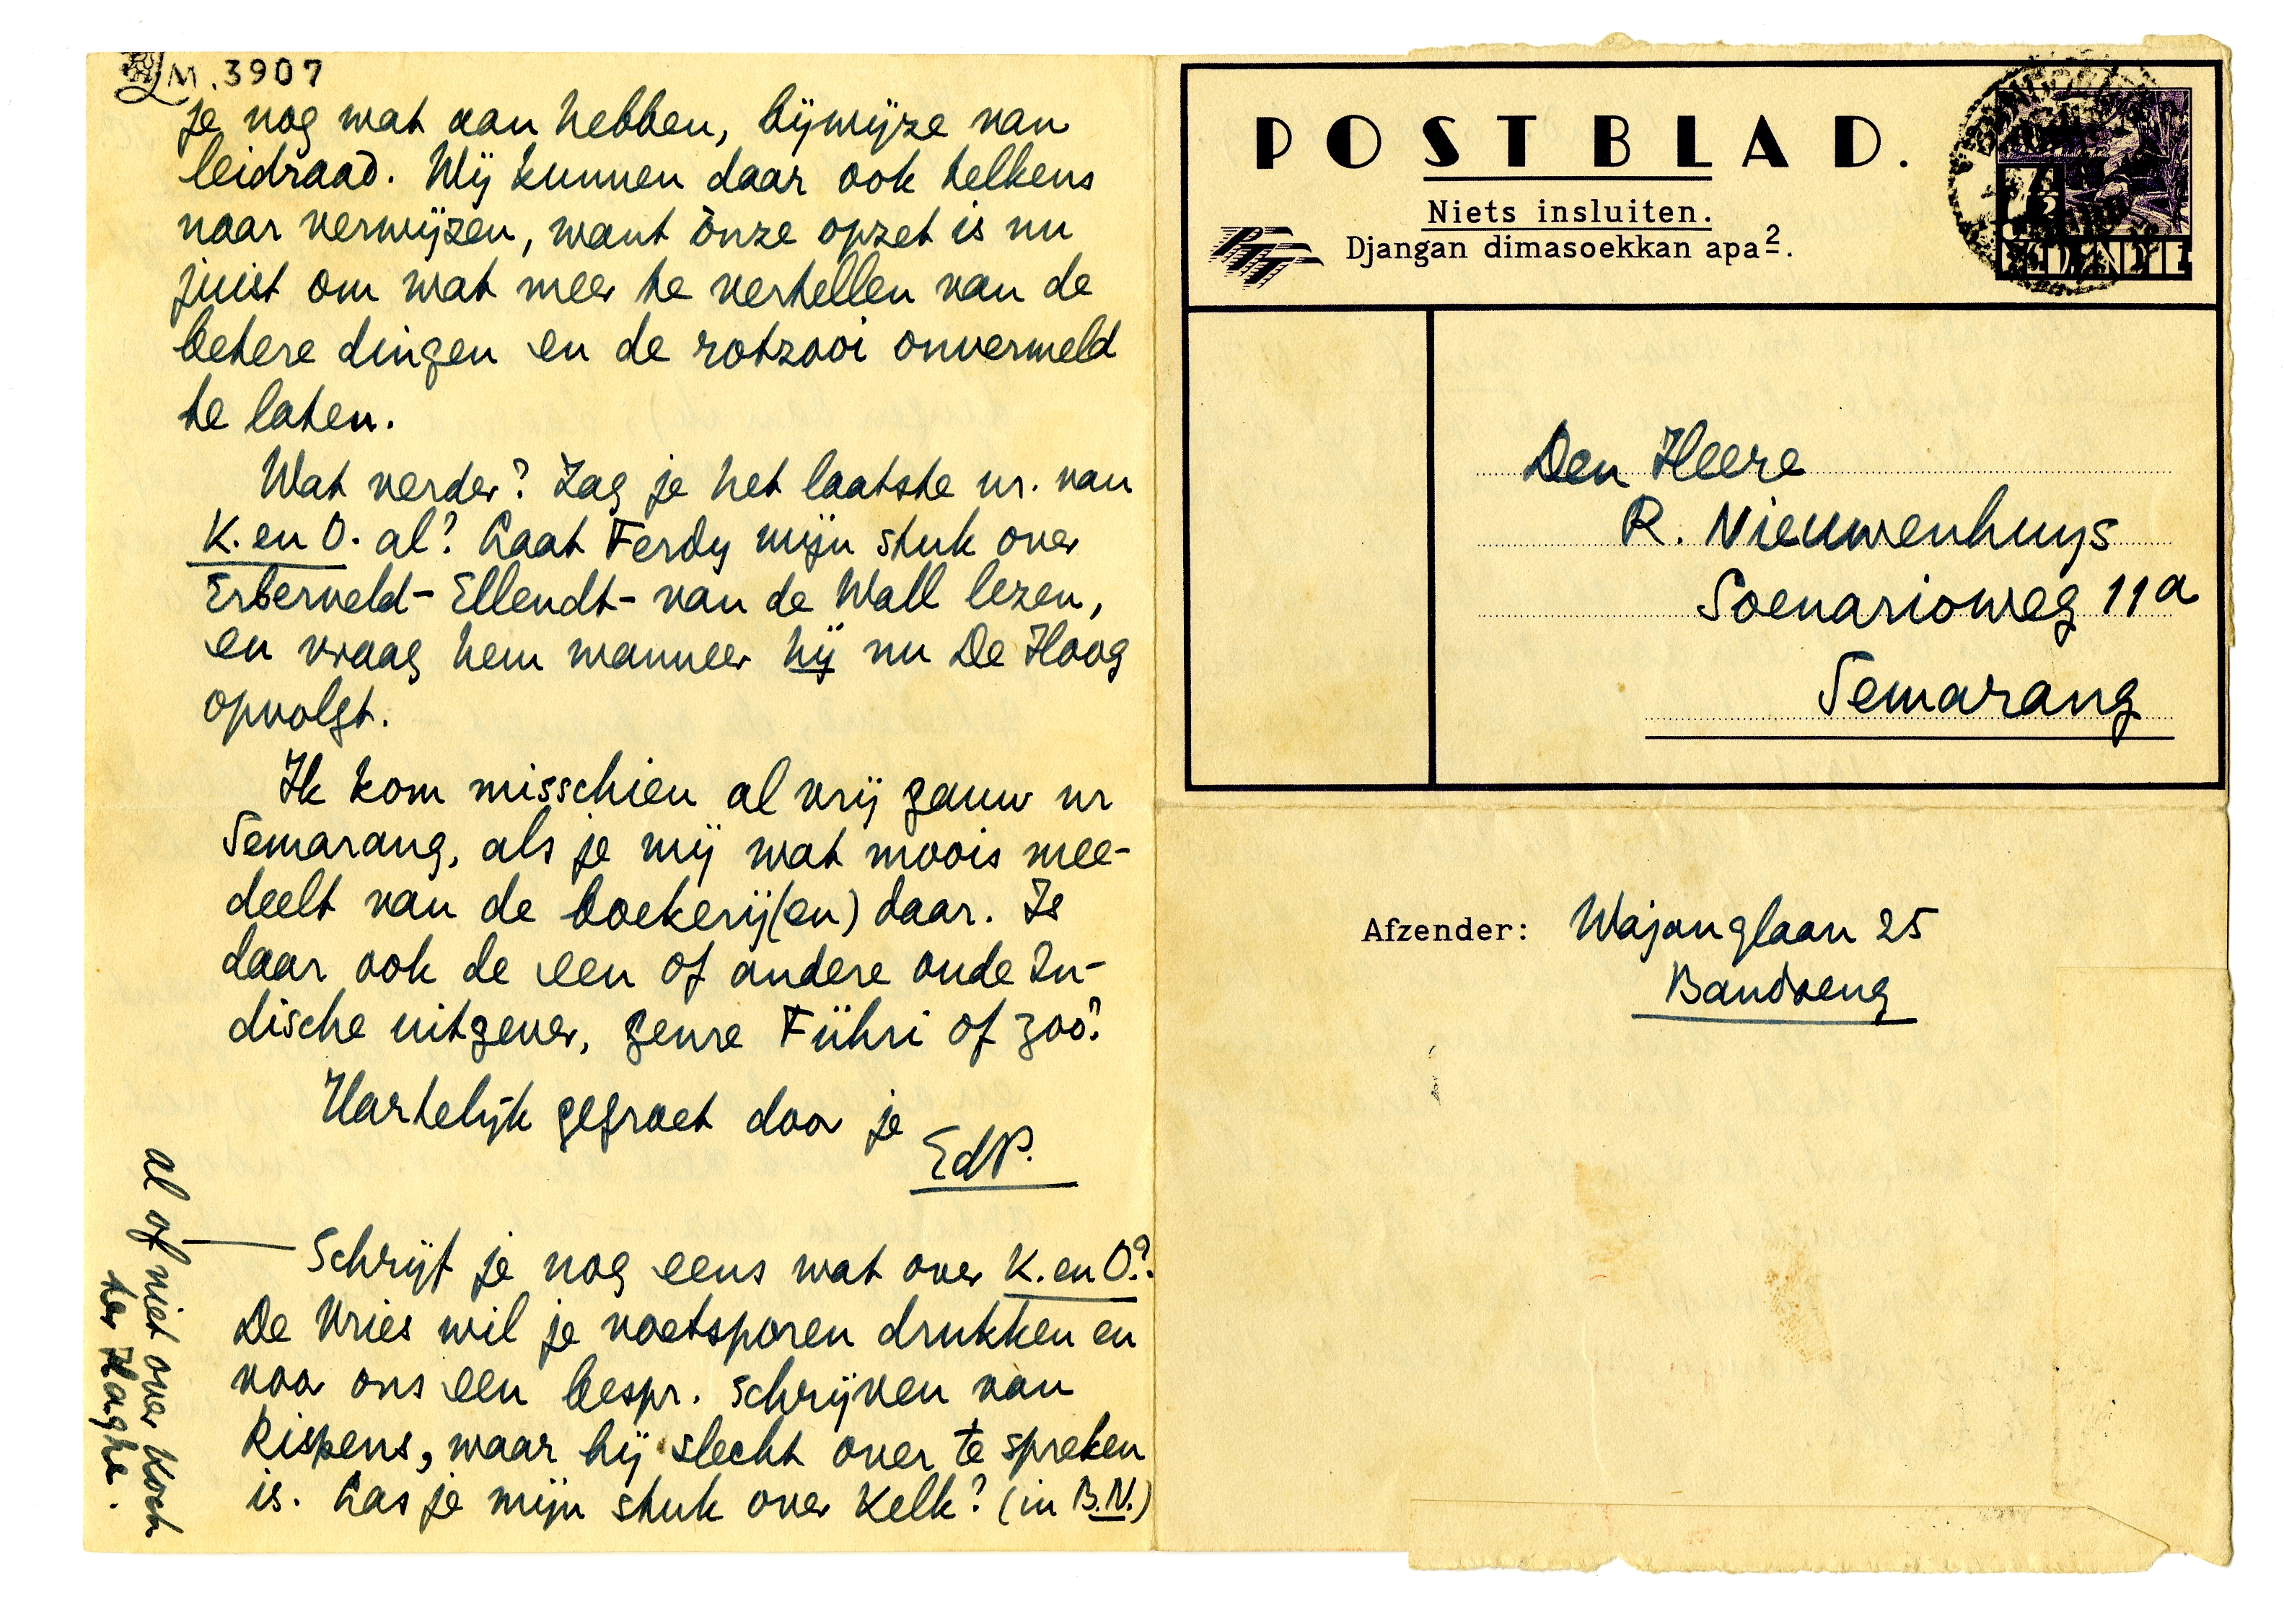 LM. 3907
je nog wat aan hebben, bijwijze van
leidraad. Wij kunnen daar ook telkens
naar verwijzen, want ònze opzet is nu
juist om wat meer te vertellen van de
betere dingen en de rotzooi onvermeld
te laten.
Wat verder? Zag je het laatste nr. van
K. en O. al? Laat Ferdy mijn stuk over
Erberveld-Ellendt-van de Wall lezen,
en vraag hem wanneer hij nu De Hoog
opvolgt.
Ik kom misschien al vrij gauw nr
Semarang, als je mij wat moois mee-
deelt van de boekerij(en) daar. Is
daar ook de een of andere oude In-
dische uitgever, genre Führi of zoo?
Hartelijk gegroet door je
EdP.
Schrijf je nog eens wat over K. en O.?
De Vries wil je voetsporen drukken en
voor ons een bespr. schrijven van
Rispens, waar hij slecht over te spreken
is. Las je mijn stuk over Kelk? (in B.N.)
al of niet over Koch
ter Haghe.
POSTBLAD.
Niets insluiten.
Djangan dimasoekkan apa2.
PTT
7½
NED. INDIE
Den Heere
R. Nieuwenhuys
Soenarioweg 11a
Semarang
Afzender: Wajanglaan 25
Bandoeng